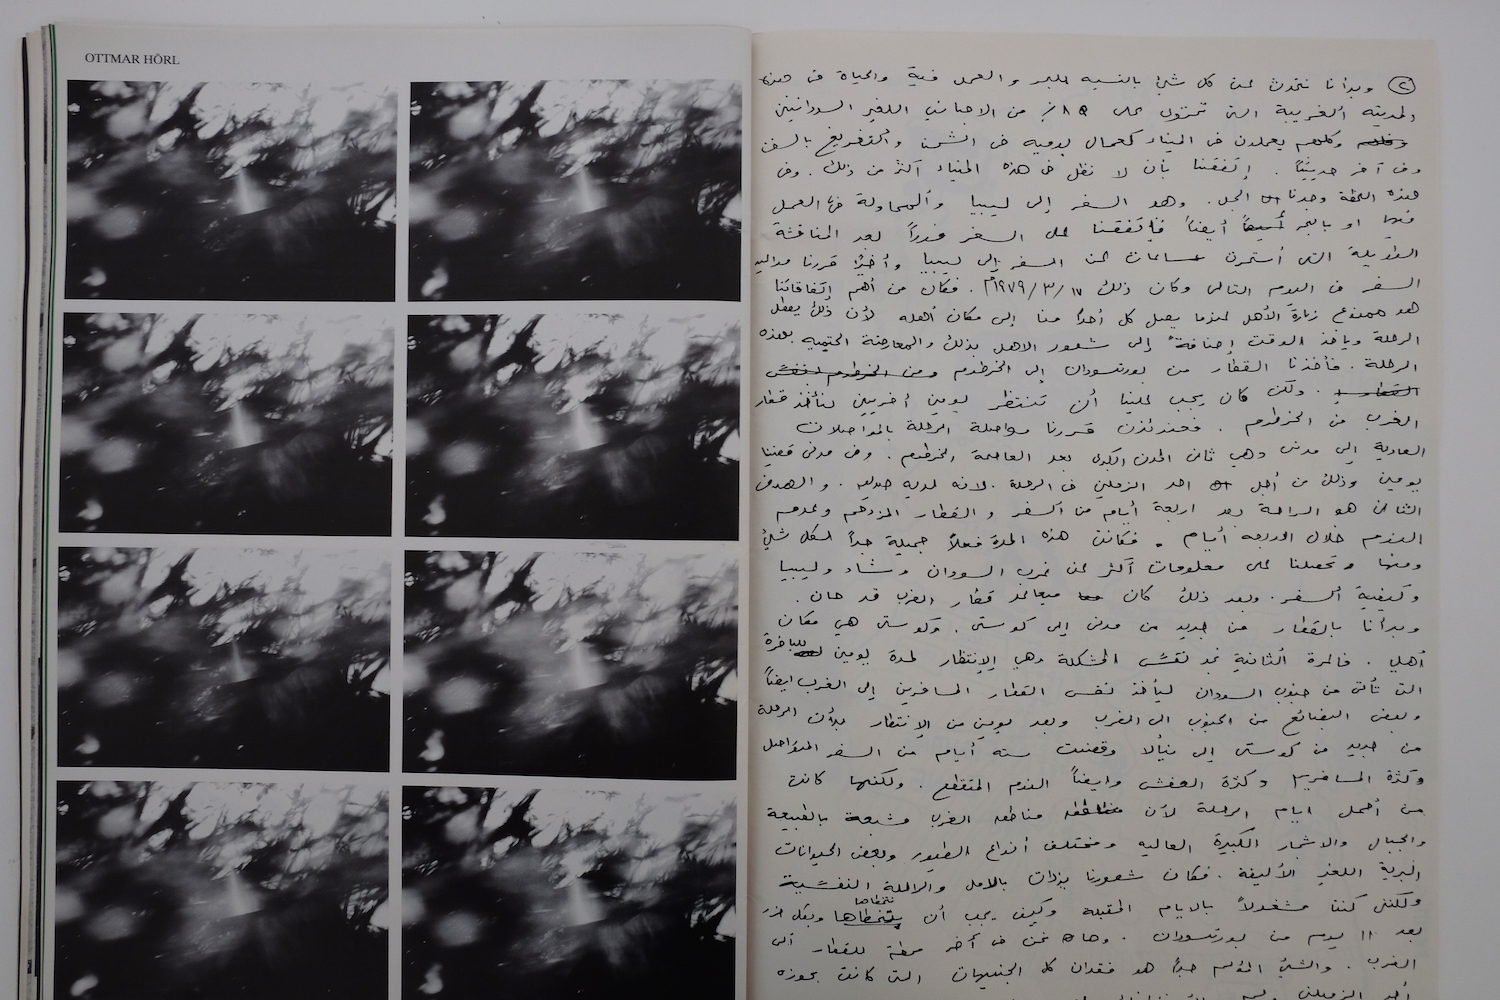 OTTMAR HÖRL
٢ وبدأنا نتحدث عن كل شئ بالنسبه للبر والعمل فية والحياة فى هذه
المدينه الغريبة التى تحتوى على ٨٥٪ من الاجانب اللغير السودانيين
وكلهم يعملون فى الميناء كعمال يوميه فى الشحن والتفريغ بالسفن
وفى آخر حديثناً . إتفقنا بأن لا نظل فى هذه الميناء أكثر من ذلك . وفى
هذه اللحظة وجدنا الحل . وهو السفر إلى ليبيا والمحاولة فى العمل
فيها او بالبحر أيضاً فإتفقنا على السفر فوراً بعد المناقشة
الطويلة التى أستمرت ساعات عن السفر إلى ليبيا وأخيراً قررنا مواليد
السفر فى اليوم التالى وكان ذلك ١٧/٣/١٩٧٩م . فكان من أهم إتفاقاتنا
هو ممنوع زيارة الأهل عندما يصل كل أحداً منا إلى مكان أهله لأن ذلك يعطل
الرحلة وياخذ الوقت إضافةً إلى شعور الاهل بذلك والمعارضة الحتميه بهذه
الرحلة . فأخذنا القطار من بورتسودان إلى الخرطوم ومن الخرطوم بنفس
القطار . ولكن كان يجب علينا أن ننتظر يومين أخريين لنأخذ قطار
الغرب من الخرطوم . فعندئذن قررنا مواصلة الرحلة بالمواصلات
العادية إلى مدنى وهى ثانى المدن الكبرى بعد العاصمة الخرطوم . وفى مدنى قضينا
يومين وذلك من أجل احد الزملين فى الرحلة . لانه لديه صديق . والهدف
الثانى هو الراحة بعد اربعة أيام من السفر والقطار المزدحم وعدم
النوم خلال الاربعه أيام . فكانت هذه المدة فعلاً جميلة جداً لكل شئ
ومنها وتحصلنا على معلومات أكثر عن غرب السودان وتشاد وليبيا
وكيفية السفر . وبعد ذلك كان ميعاد قطار الغرب قد حان .
وبدأنا بالقطار من جديد من مدنى إلى كوستى . وكوستى هى مكان
أهلي . فالمرة الثانية نجد نفس المشكلة وهى الإنتظار لمدة يومين للباخرة
التى تأتى من جنوب السودان ليأخذ نفس القطار المسافرين إلى الغرب ايضاً
وبعض البضائع من الجنوب الى الغرب وبعد يومين من الإنتظار بدأت الرحلة
من جديد من كوستى إلى نيألا وقضيت سته أيام من السفر المتواصل
وكثرة المسافرين وكثرة العفش وايضاً النوم المتقطع . ولكنها كانت
من أجمل ايام الرحلة لأن مناطق الغرب مشبعة بالطبيعة
والجبال والاشجار الكبيرة العاليه ومختلف أنواع الطيور وبعض الحيوانات
البرية اللغير الأليفة . فكان شعورنا بالامل والراحة النفسية
ولكننى كنت مشغولاً بالايام المقبلة وكيف يجب أن نتخطاها
بعد ١١ يوم من بورتسودان . وها نحن فى أخر محطة للقطار ألى
الغرب . والشئ المؤلم جداً هو فقدان كل الجنيهات التى كانت بحوزه
أحد الزميلين